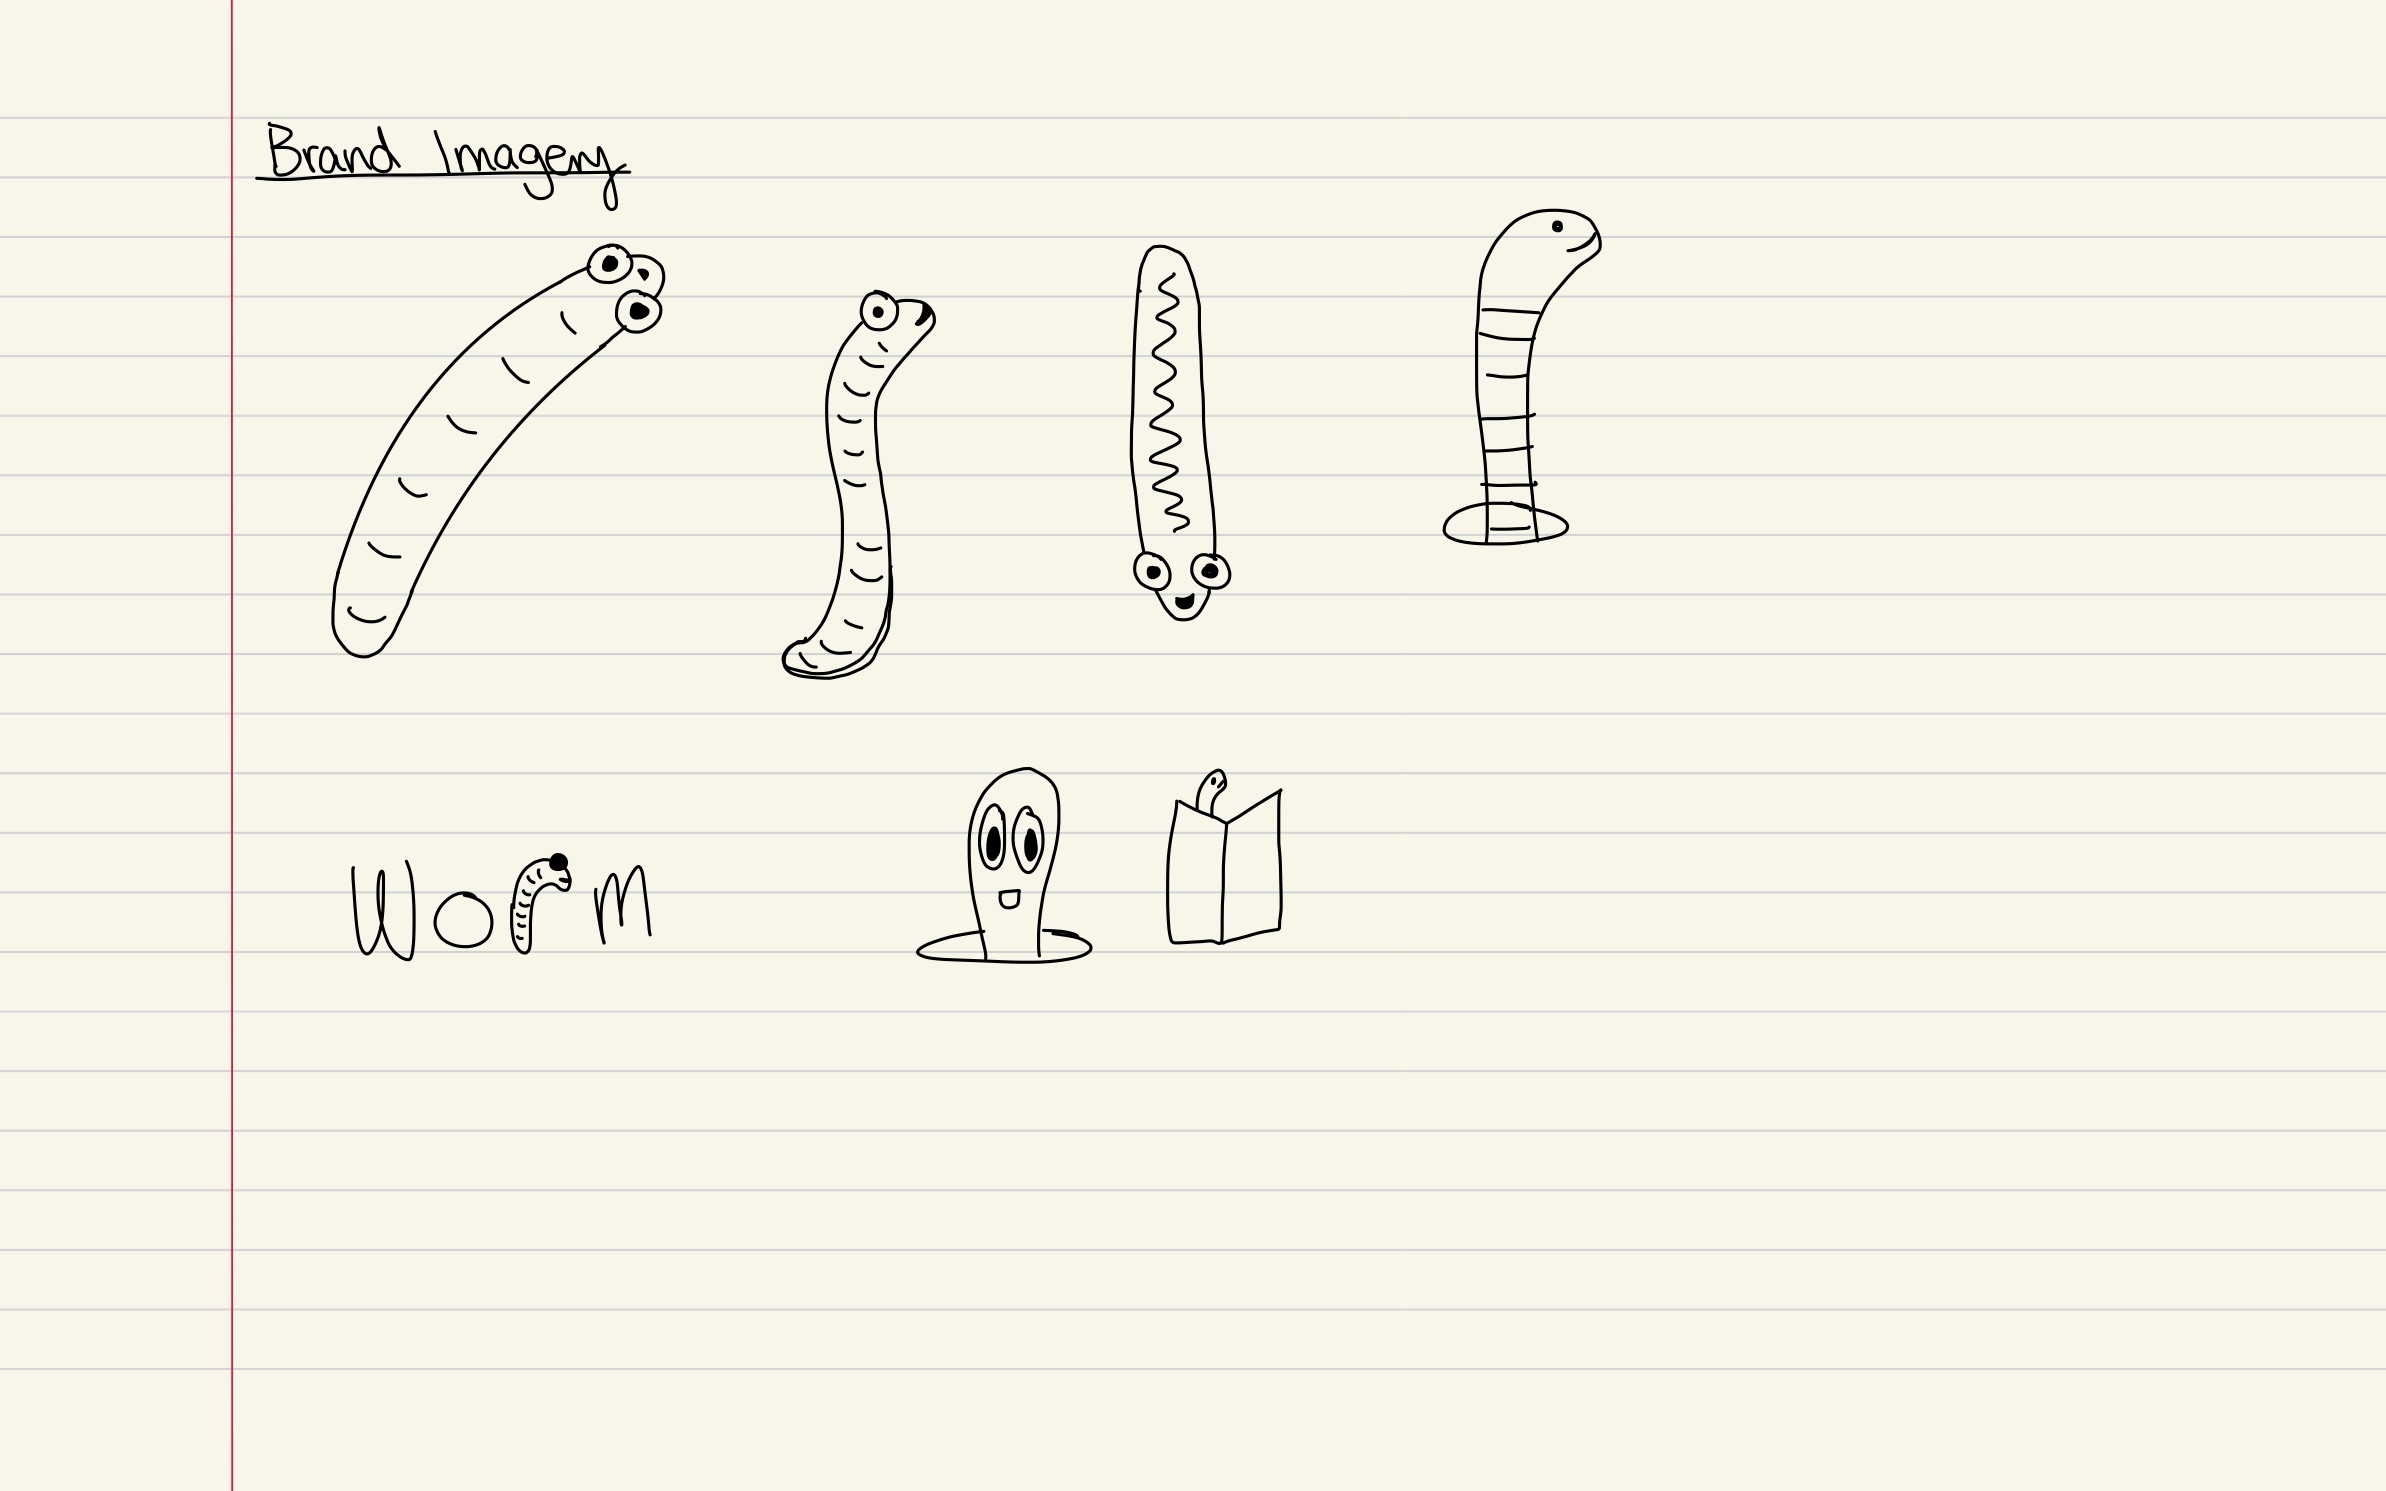 Brand Imagery
Worm